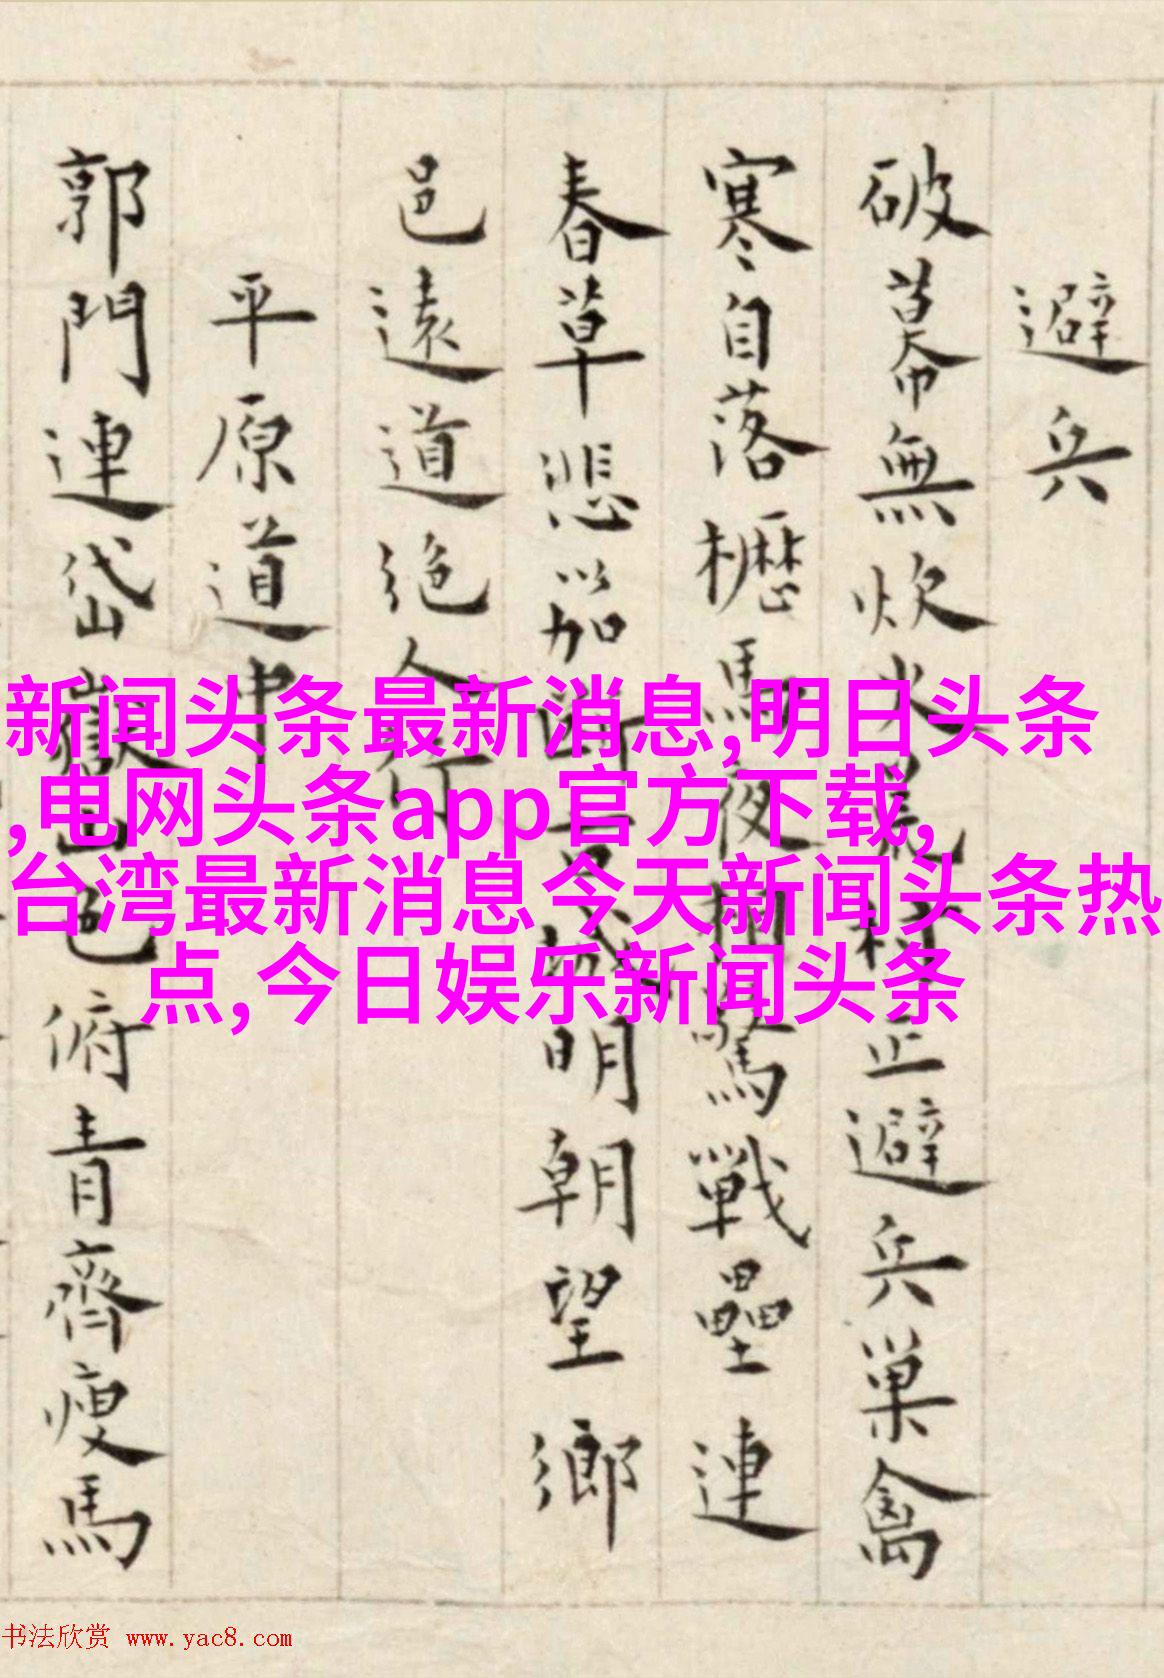 避兵
破幕無炊火荒村正避兵巢禽
寒自落櫪馬夜相驚戰壘連
春草悲笳城明朝望鄉
邑遠道絕人行
平原道中
郭門連岱嶽山色俯青齊瘦馬
新闻头条最新消息,明日头条
,电网头条app官方下载,
台湾最新消息今天新闻头条热
点,今日娱乐新闻头条
书法欣赏 www.yac8.com